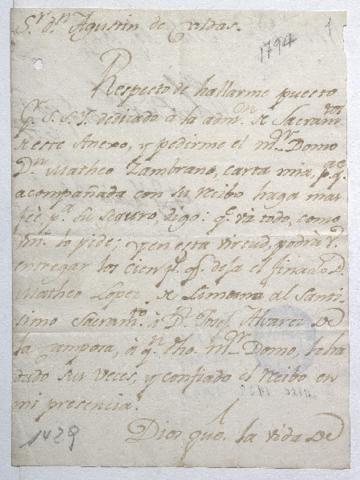 S.r d.n Agustin de Valdas.
1794
1
Respecto de hallarme puesto
p.r S. S.Y. dedicado a la adm.on de Sacram.tos
de este Anexo, y pedirme el m.or Domo
D.n Matheo Zambrano, carta mia, p.a q.e
acompañada con su recibo haga mas
feè p.a su seguro, digo: q.e va todo, como
Vm. lo pide; y en esta virtud, podrà Vd.
entregar los cien p.s q.e deja el finado D.
Matheo Lopez de Limeana al Santi
simo Sacram.to à D.n Josef Alvarez de
la Campora, à q.n dho m.or Domo, la ha
dado sus veces, y confiado el recibo en
mi presencia.
Dios gue. la vida de
1429